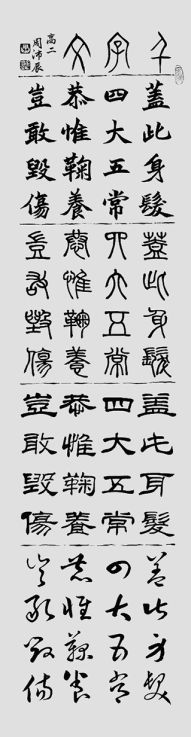 千字文
高二
周沛辰
蓋此身髮
四大五常
恭惟鞠養
豈敢毀傷
蓋此身髮
四大五常
恭惟鞠養
豈敢毀傷
蓋此身髮
四大五常
恭惟鞠養
豈敢毀傷
蓋此身髮
四大五常
恭惟鞠養
豈敢毀傷